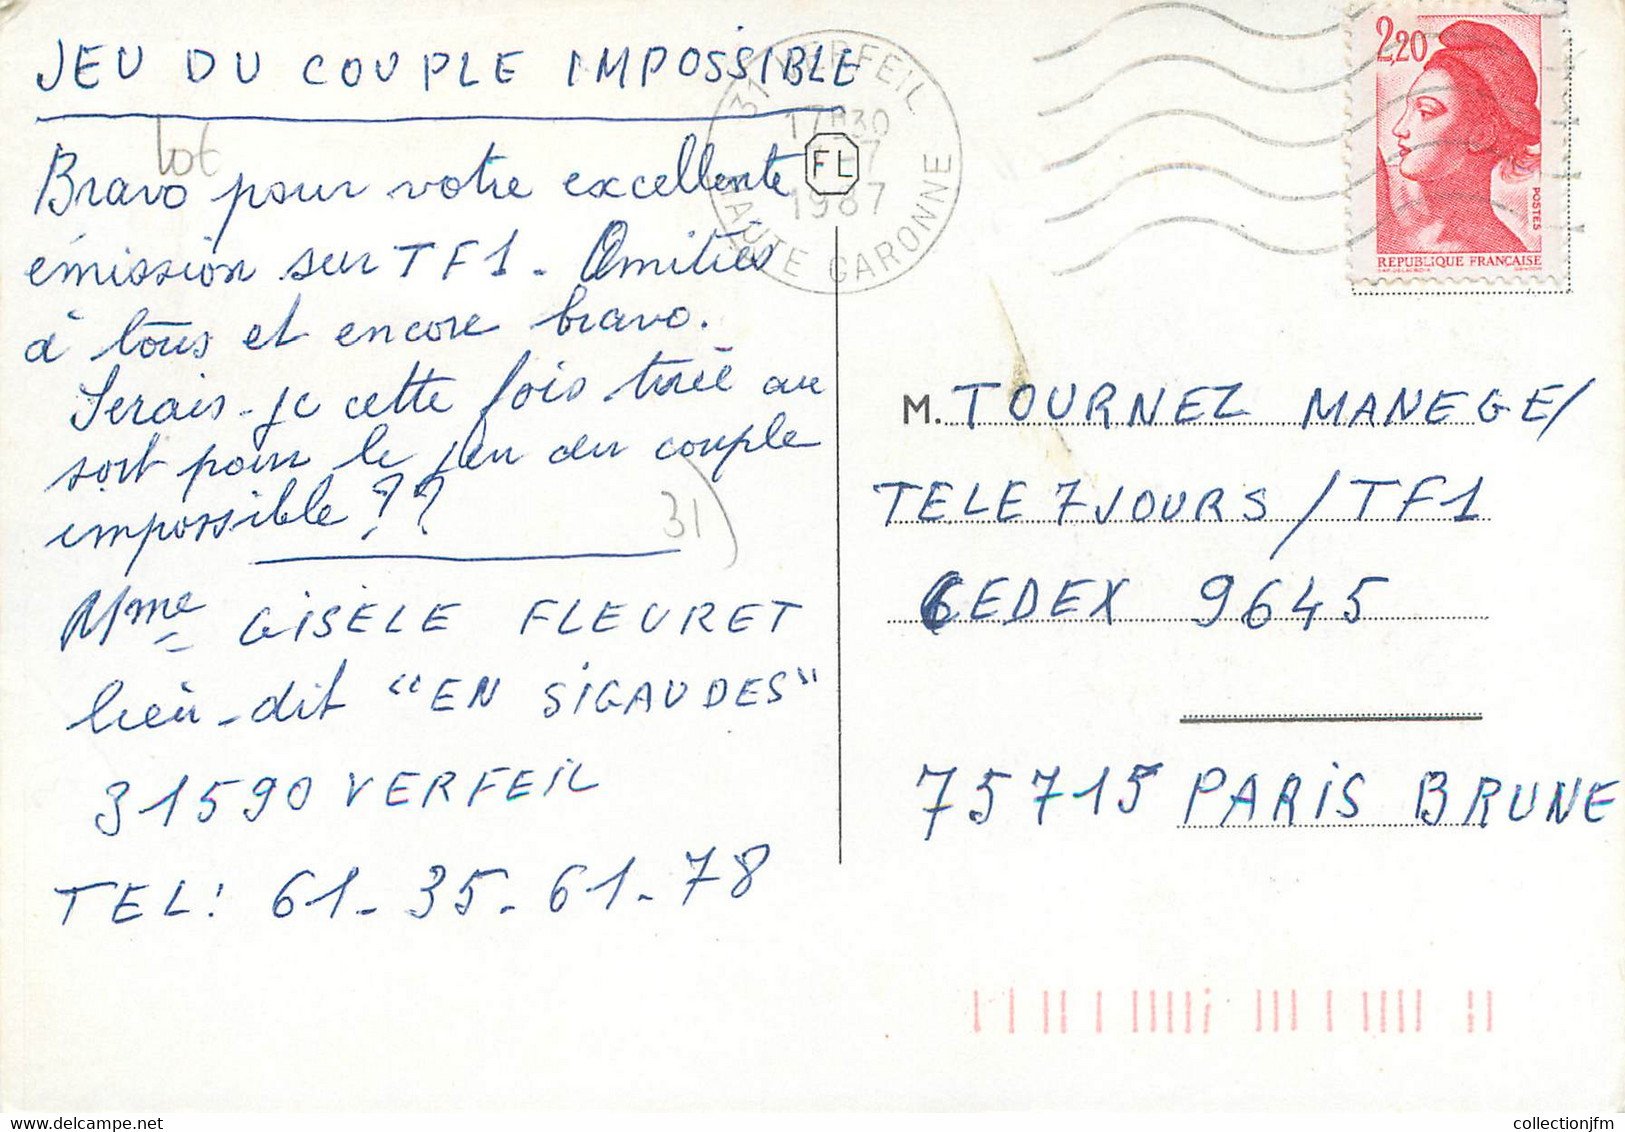 JEU DU COUPLE IMPOSSIBLE
lot
Bravo pour votre excellente
émission sur TF1. Amitiés
à tous et encore bravo.
Serais-je cette fois tirée au
sort pour le jeu du couple
impossible ??
31
Mme GISÈLE FLEURET
lieu-dit "EN SIGAUDES"
31590 VERFEIL
TEL: 61-35-61-78
31 VERFEIL
17H30
7
1987
HAUTE GARONNE
FL
2,20
POSTES
REPUBLIQUE FRANÇAISE
M. TOURNEZ MANEGE/
TELE 7 JOURS / TF1
CEDEX 9645
75715 PARIS BRUNE
collectionjfm